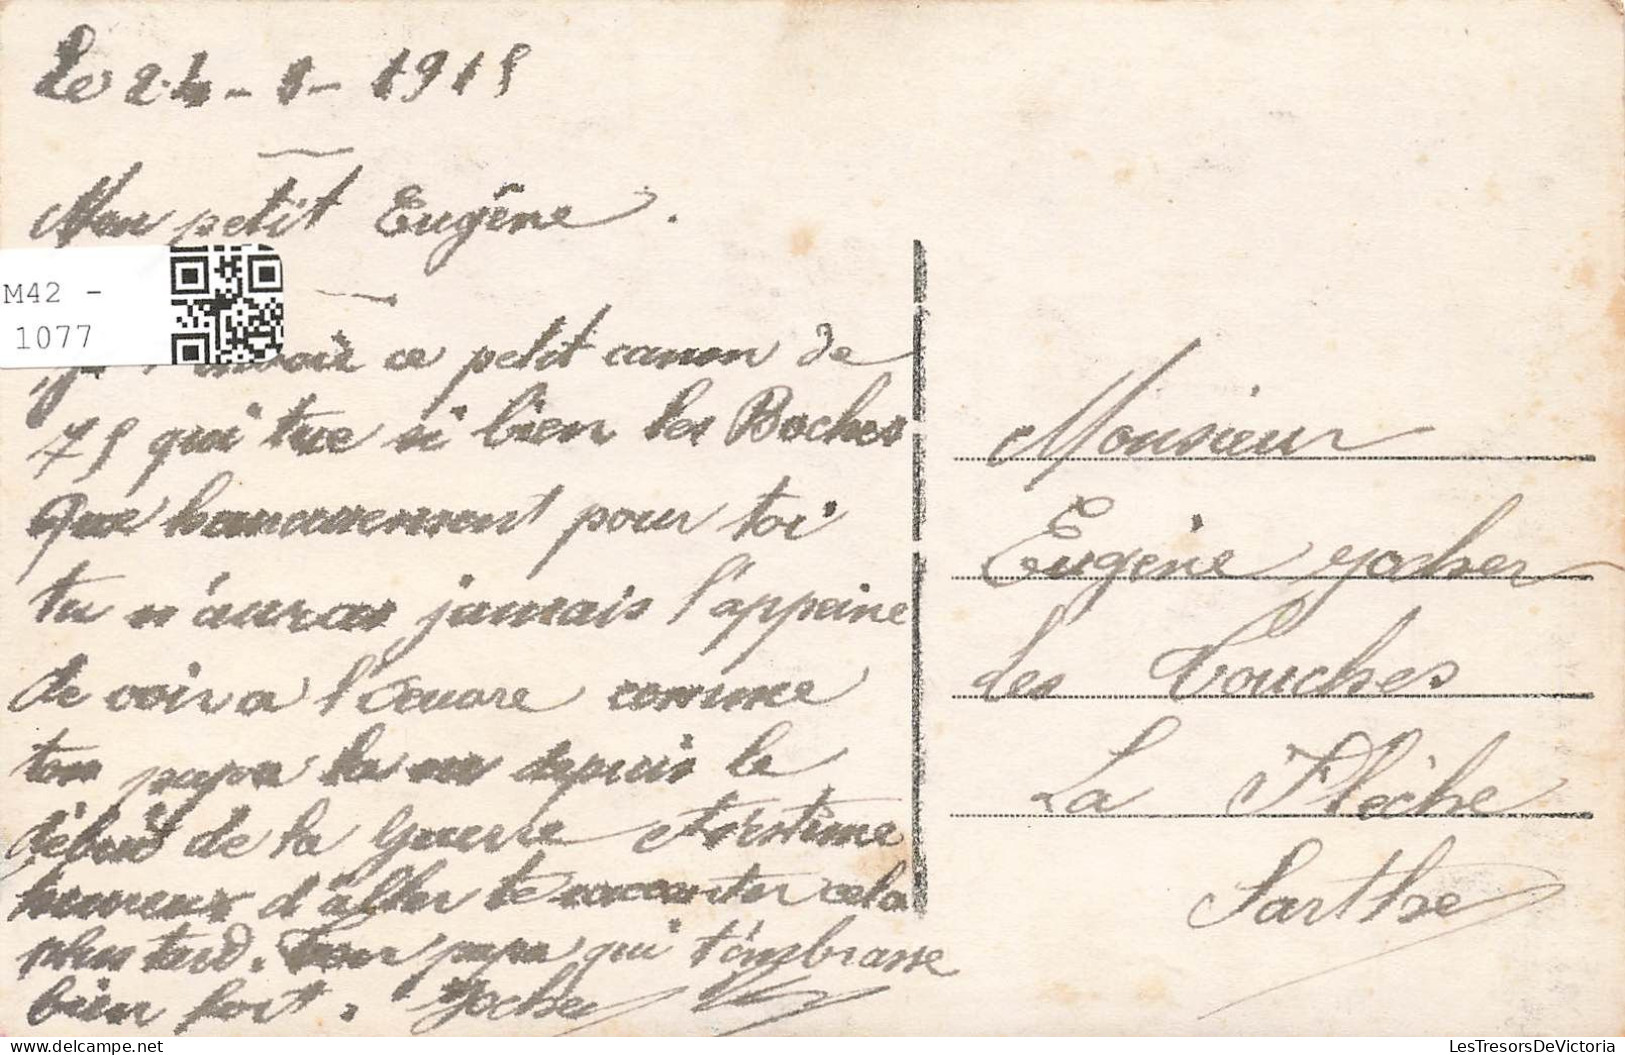 Le 24-8-1915
Mon petit Eugène.
M42 -
1077
ce petit canon de
75 qui tue si bien les Boches
Que heureusement pour toi
tu n'auras jamais l'appeine
de voir a l'œuvre comme
ton papa la vu depuis le
début de la Guerre
heureux d'aller te raconter cela
plus tard. Ton papa qui t'embrasse
bien fort. Yocher
Monsieur
Eugène Yocher
les Touches
La Flèche
Sarthe
LesTresorsDeVictoria